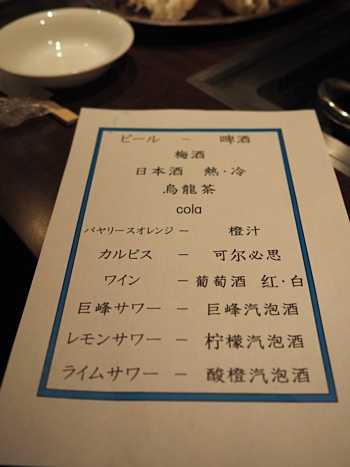 ビール － 啤酒
梅酒
日本酒 熱・冷
烏龍茶
cola
バヤリースオレンジ － 橙汁
カルピス － 可尔必思
ワイン － 葡萄酒 红・白
巨峰サワー － 巨峰汽泡酒
レモンサワー － 柠檬汽泡酒
ライムサワー － 酸橙汽泡酒